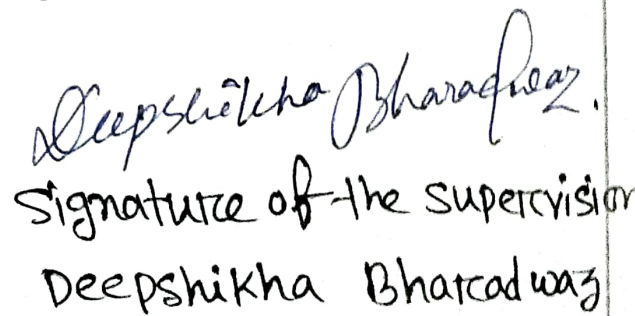 Deepshikha Bharadwaz.
Signature of the supervisior
Deepshikha Bharadwaz